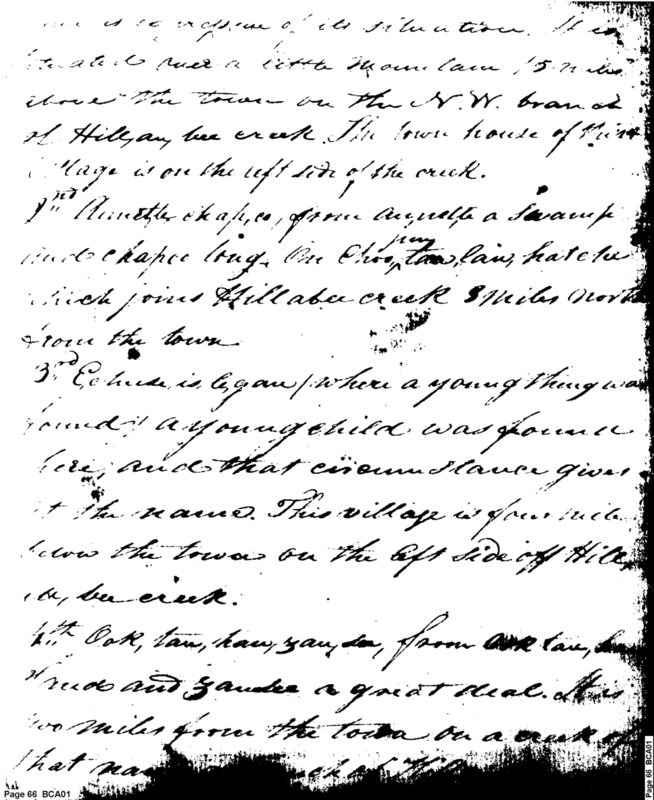 is expressive of its situation. It is
situated near a little mountain 15 miles
above the town on the N. W. branch
of Hill,au, bee creek. The town house of this
village is on the left side of the creek.
2nd Aunette chap,co, from aunette a swamp
and chapco long. On Choo,
which joins Hillabee creek 3 miles north
from the town
3rd Echuse,is,ligau, (where a young thing was
found) a young child was found
here, and that circumstance gives
it the name. This village is four miles
below the town on the left side off Hill,
au, bee creek.
4th Ook,tau,hau,zau,see, from Ook tau,hau
sand and zausee a great deal. It is
two miles from the town on a creek of
that
Page 66 BCA01
Page 66 BCA01